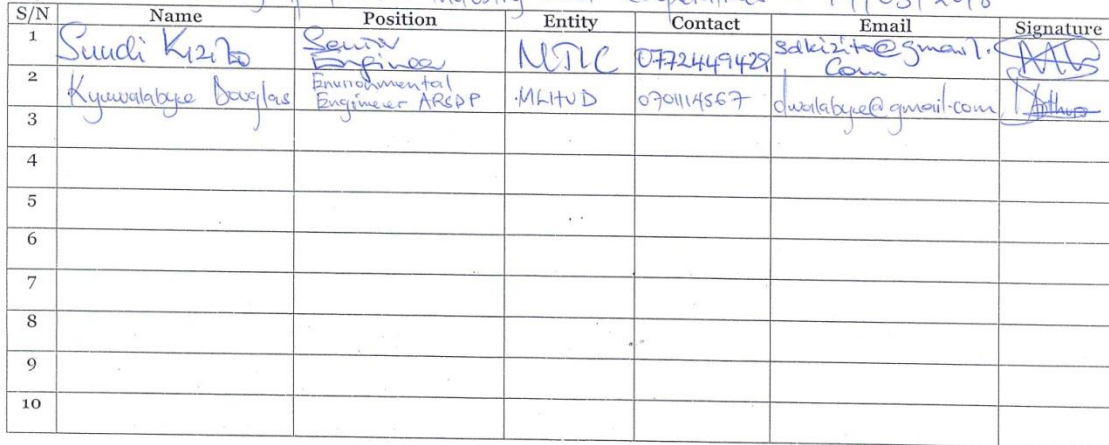 Industry Cooperatives /03/2018
S/N Name Position Entity Contact Email Signature
1 Suudi Kizito Senior Engineer MTIC 0772449429 sdkizito@gmail.com
2 Kyuwalabye Douglas Environmental Engineer ARSDP MLHUD 0701114567 dwalabye@gmail.com
3
4
5
6
7
8
9
10